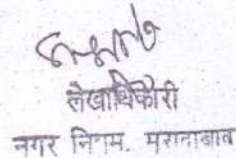 लेखाधिकारी
नगर निगम, मुरादाबाद